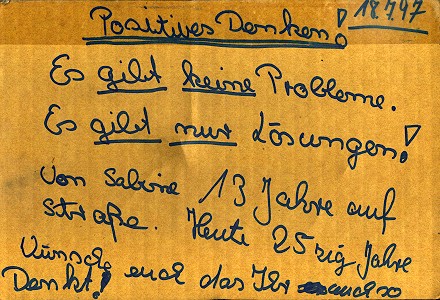 18.7.97
Positives Denken!
Es gibt keine Probleme.
Es gibt nur Lösungen!
Von Sabine 13 Jahre auf
Straße. Heute 25zig Jahre
Wünsche euch das Ihr auch so
Denkt!